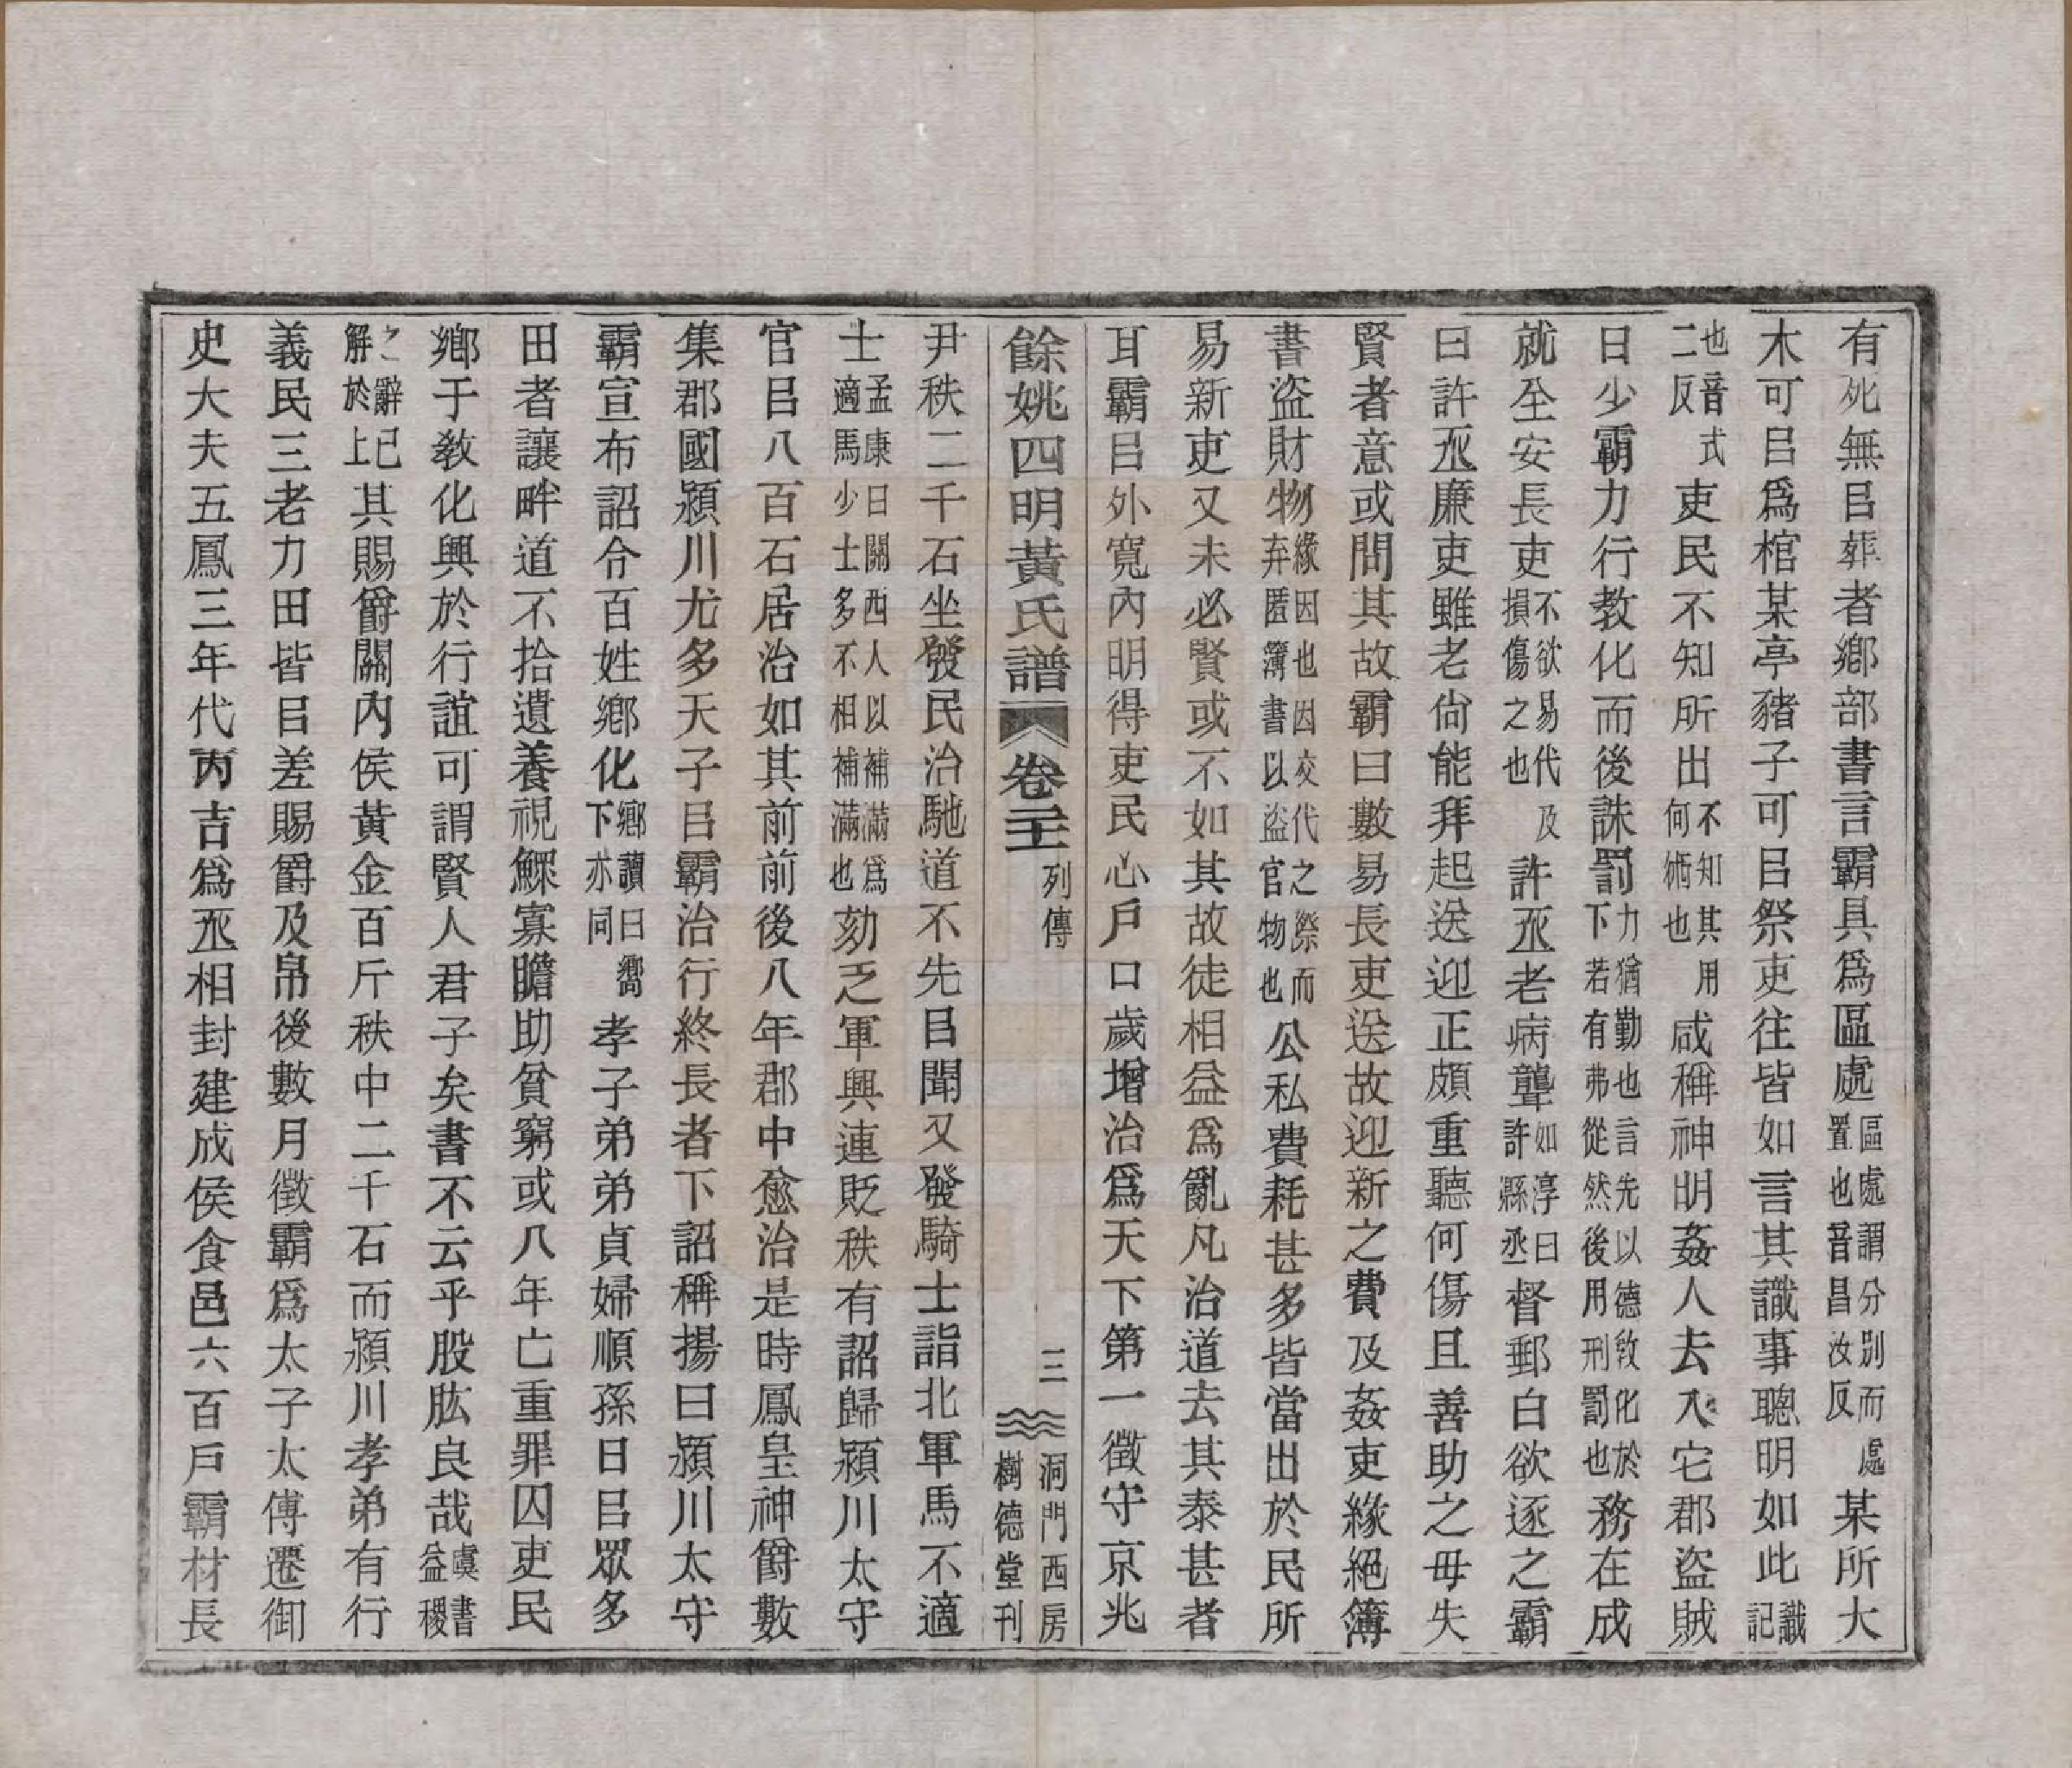 有死無㠯葬者鄉部書言霸具爲區處區處謂分別而處置也音昌汝反某所大
木可㠯爲棺某亭豬子可㠯祭吏往皆如言其識事聰明如此識記
也音式二反吏民不知所出不知其用何術也咸稱神明姦人去入它郡盜賊
日少霸力行教化而後誅罰力猶勤也言先以德教化於下若有弗從然後用刑罰也務在成
就全安長吏不欲易代及損傷之也許丞老病聾如淳曰許縣丞督郵白欲逐之霸
曰許丞廉吏雖老尙能拜起送迎正頗重聽何傷且善助之毋失
賢者意或問其故霸曰數易長吏送故迎新之費及姦吏緣絕簿
書盜財物緣因也因交代之際而弃匿簿書以盜官物也公私費耗甚多皆當出於民所
易新吏又未必賢或不如其故徒相益爲亂凡治道去其泰甚者
耳霸㠯外寬內明得吏民心戶口歲增治爲天下第一徵守京兆
餘姚四明黃氏譜
卷二十
列傳
三
洞門西房
樹德堂刊
尹秩二千石坐發民治馳道不先㠯聞又發騎士詣北軍馬不適
士孟康曰關西人以補滿爲適馬少士多不相補滿也劾乏軍興連貶秩有詔歸潁川太守
官㠯八百石居治如其前前後八年郡中愈治是時鳳皇神爵數
集郡國潁川尤多天子㠯霸治行終長者下詔稱揚曰潁川太守
霸宣布詔令百姓鄉化鄉讀曰嚮下亦同孝子弟弟貞婦順孫日㠯眾多
田者讓畔道不拾遺養視鰥寡贍助貧窮或八年亡重罪囚吏民
鄉于敎化興於行誼可謂賢人君子矣書不云乎股肱良哉虞書益稷
之辭已解於上其賜爵關內侯黃金百斤秩中二千石而潁川孝弟有行
義民三老力田皆㠯差賜爵及帛後數月徵霸爲太子太傅遷御
史大夫五鳳三年代丙吉爲丞相封建成侯食邑六百戶霸材長